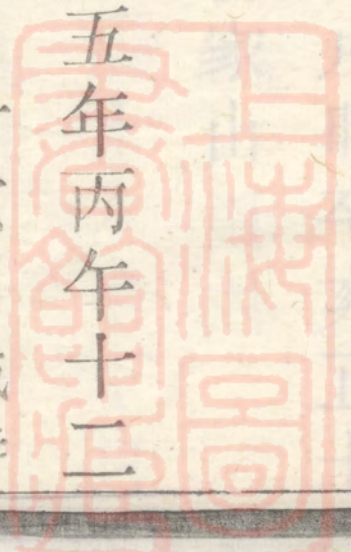 五年丙午十二
上海圖書館藏